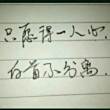 只愿得一人心.
白首不分离.